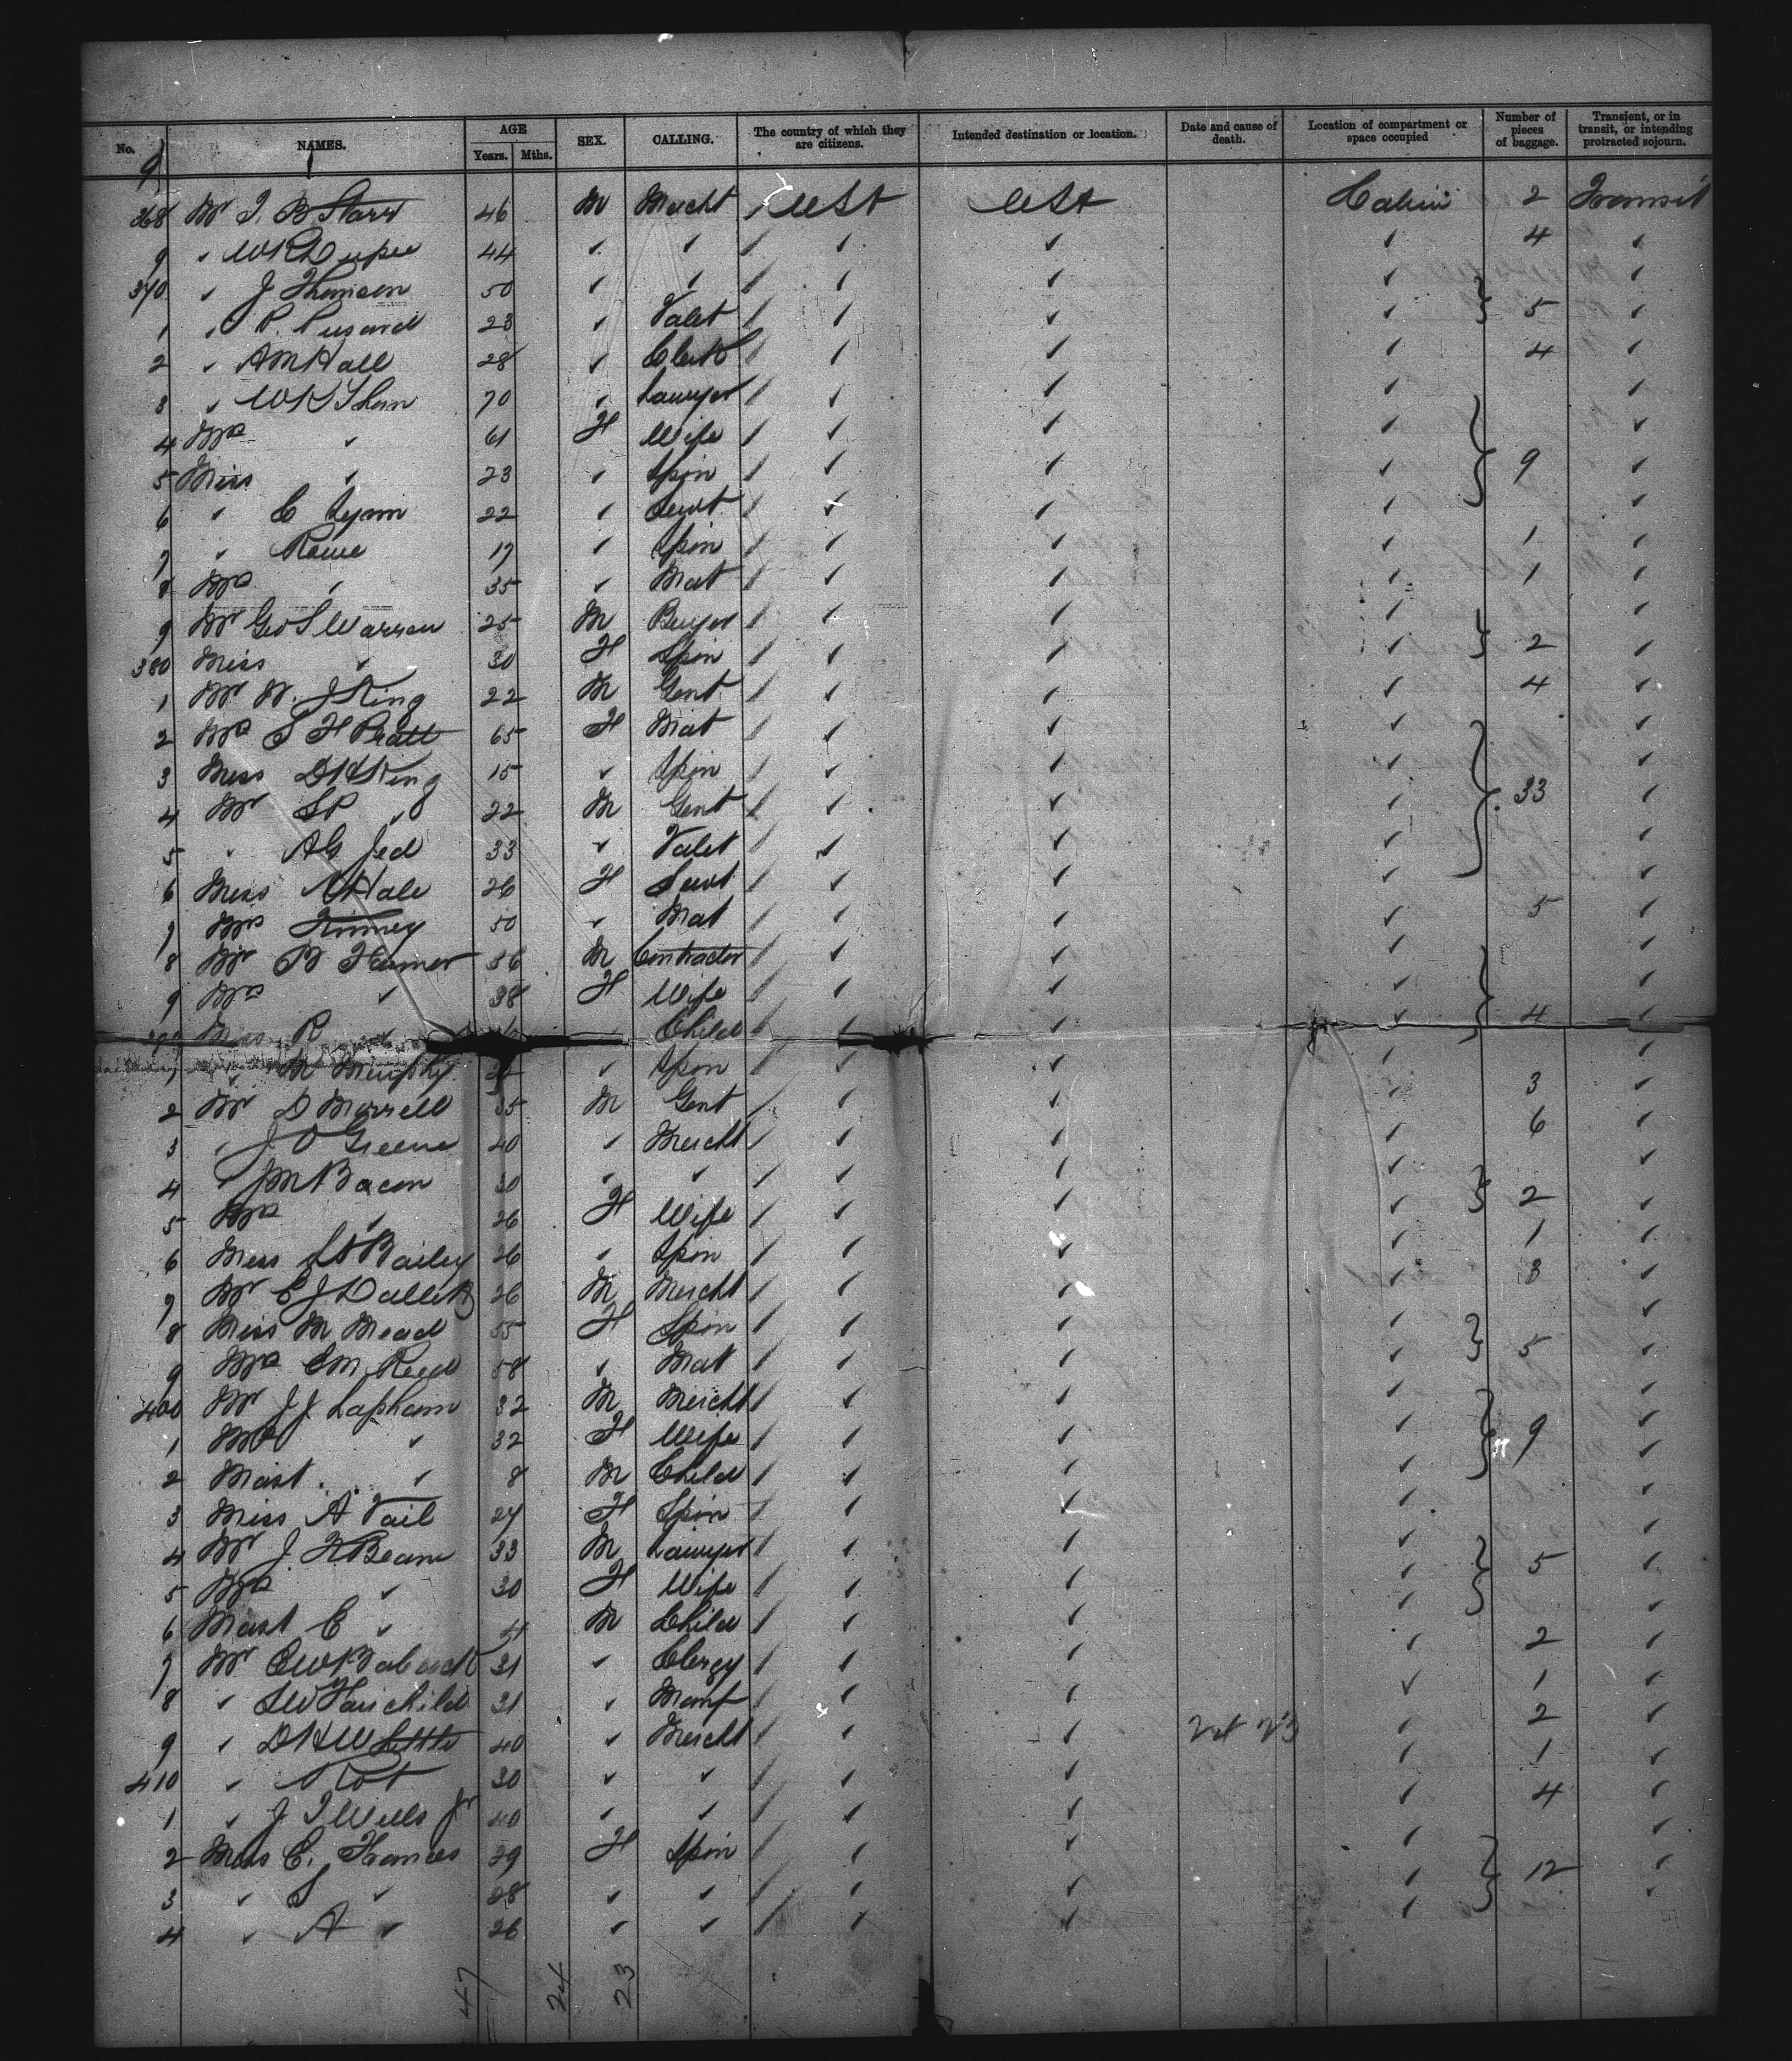 No. NAMES. AGE Years. Mths. SEX. CALLING. The country of which they are citizens. Intended destination or location. Date and cause of death. Location of compartment or space occupied Number of pieces of baggage. Transient, or in transit, or intending protracted sojourn.
9
368 Mr T. B Starr 46 M Mercht USt USt Cabin 2 Transit
9 " W R Dupee 44 " " " " " 4 "
370 " J Thomson 50 " " " " " "
1 " P. 23 " Valet " " " 5 "
2 " A M Hall 28 " Clerk " " " 4 "
3 " W K Thorn 70 " Lawyer " " " "
4 Mrs " 61 F Wife " " " "
5 Miss " 23 " Spin " " " 9 "
6 " C Lynn 22 " Servt " " " "
7 " 17 " Spin " " " 1 "
8 Mrs " 35 " Mat " " " 1 "
9 Mr Geo S Warren 25 M Buyer " " " "
380 Miss " 30 F Spin " " " 2 "
1 Mr W. J King 22 M Gent " " " 4 "
2 Mrs S H Pratt 65 F Mat " " " "
3 Miss D K King 15 " Spin " " " "
4 Mr S P " 22 M Gent " " " 33 "
5 " A G Jed 33 " Valet " " " "
6 Miss A Hale 26 F Servt " " " "
7 Mrs Finney 50 " Mat " " " 5 "
8 Mr B Farmer 36 M Contractor " " " "
9 Mrs " 38 F Wife " " " "
Miss R " Child " " " 4 "
1 " M Murphy " Spin " " " "
2 Mr D Morrell 35 M Gent " " " 3 "
3 " J O Greene 40 " Mercht " " " 6 "
4 " J M Bacon 30 " " " " " "
5 Mrs " 26 F Wife " " " 2 "
6 Miss Bailey 26 " Spin " " " 1 "
7 Mr E J 26 M Mercht " " " 3 "
8 Miss M Mead 55 F Spin " " " "
9 Mrs E M Reed 58 " Mat " " " 5 "
400 Mr J J Lapham 32 M Mercht " " " "
1 Mrs " 32 F Wife " " " 9 "
2 Mast. " 8 M Child " " " "
3 Miss A Vail 27 F Spin " " " "
4 Mr J F Beam 33 M Lawyer " " " "
5 Mrs " 30 F Wife " " " 5 "
6 Mast E " 4 M Child " " " "
7 Mr E W Babcock 31 " Clergy " " " 2 "
8 " S W Fairchild 31 " Manf " " " 1 "
9 " D H W Little 40 " Mercht " " " 2 "
410 " 30 " " " " " 1 "
1 " J T Wills Jr 40 " " " " " 4 "
2 Miss C. Frances 29 F Spin " " " "
3 " S " 28 " " " " " 12 "
4 " A " 26 " " " " " "
47 24 23